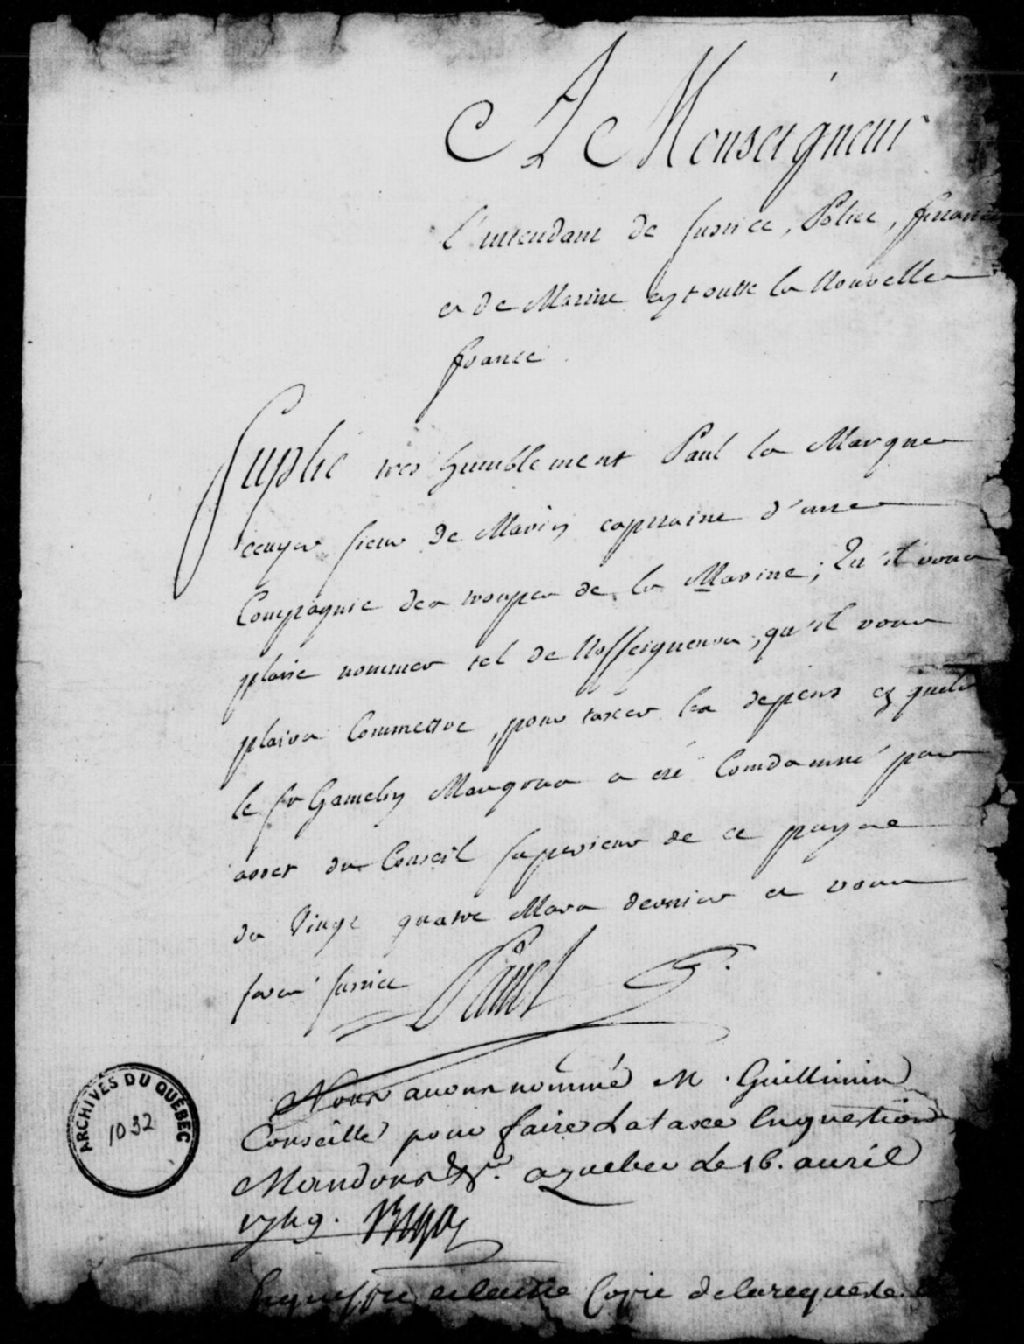 A Monseigneur
L'intendant de Justice, Police, finance
et de Marine en toutte la Nouvelle
france
Suplie tres humblement Paul la Margue
ecuyer sieur de Marin capitaine d'une
Compagnie des troupes de la Marine; Qu'il vous
plaise nommer tel de Nosseigneurs, qu'il vous
plaira Commettre, pour taxer les depens es quels
le Sr Gamelin Maugras a été Comdamné par
arret du Conseil superieur de ce pays
du Vingt quatre Mars dernier et vous
ferez justice Panet
Nous avons nommé M. Guillimin
Conseille pour faire La taxe En question
Mandons &c. a quebec Le 16. avril
1749. Bigot
ARCHIVES DU QUÉBEC
1032
Copie de la requeste